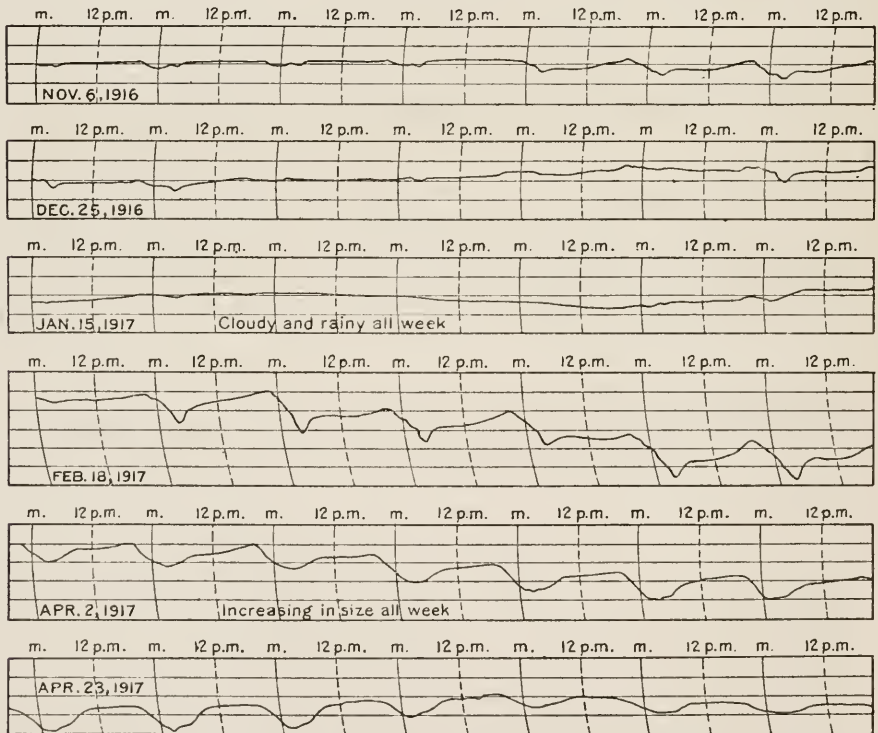 m. 12 p.m. m. 12 p.m. m. 12 p.m. m. 12 p.m. m. 12 p.m. m. 12 p.m. m. 12 p.m.
NOV. 6, 1916
m. 12 p.m. m. 12 p.m. m. 12 p.m. m. 12 p.m. m. 12 p.m. m 12 p.m. m. 12 p.m.
DEC. 25, 1916
m. 12 p.m. m. 12 p.m. m. 12 p.m. m. 12 p.m. m. 12 p.m. m. 12 p.m. m. 12 p.m.
JAN. 15, 1917 Cloudy and rainy all week
m. 12 p.m. m. 12 p.m. m. 12 p.m. m. 12 p.m. m. 12 p.m. m. 12 p.m. m. 12 p.m.
FEB. 18, 1917
m. 12 p.m. m. 12 p.m. m. 12 p.m. m. 12 p.m. m. 12 p.m. m. 12 p.m. m. 12 p.m.
APR. 2, 1917 Increasing in size all week
m. 12 p.m. m. 12 p.m. m. 12 p.m. m. 12 p.m. m. 12 p.m. m. 12 p.m. m. 12 p.m.
APR. 23, 1917